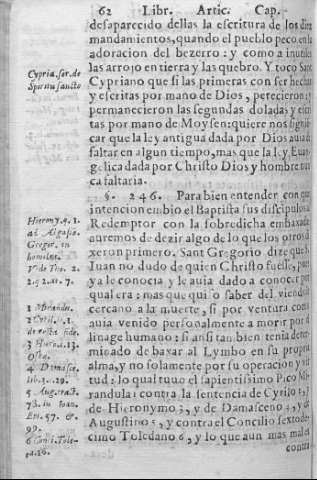 62 Libr. Artic. Cap.
desaparecido dellas la escritura de los diez
mandamientos, quando el pueblo peco, en la
adoracion del bezerro: y como a inutiles
las arrojo en tierra y las quebro. Y toco Sant
Cypriano que si las primeras con ser hechas
y escritas por mano de Dios, perecieron: y
permanecieron las segundas doladas y escri
tas por mano de Moysen: quiere nos signifi
car que la ley antigua dada por Dios auia de
faltar en algun tiempo, mas que la ley Euan
gelica dada por Christo Dios y hombre nun
ca faltaria.
Cypria. ser. de
Spiritu sancto
§. 246. Para bien entender con que
intencion embio el Baptista sus discipulos al
Redemptor con la sobredicha embaxada
auremos de dezir algo de lo que los otros di
xeron primero. Sant Gregorio dize que S.
Iuan no dudo de quien Christo fuesse, pues
ya le conocia y le auia dado a conocer por
qual era: mas que quiso saber del viendose
cercano a la muerte, si por ventura como
auia venido personalmente a morir por el
linage humano: si ansi tan bien tenia deter
minado de baxar al Lymbo en su propria
alma, y no solamente por su operacion y vir
tud: lo qual tuuo el sapientissimo Pico Mi
randula 1 contra la sentencia de Cyrilo 2, y
de Hieronymo 3, y de Damasceno 4, y de
Augustino 5, y contra el Concilio sexto de
cimo Toledano 6, y lo que aun mas mal es
contra
Hierony. q. 1.
ad Algasiã.
Gregor. in
homeliis.
Tho. 2.
2. q. 2. ar. 7.
1 Mirandu.
2 Cyril. li. 1.
de recta fide.
3 Hiero. i. 13.
Oseæ.
4 Damasce.
lib. 3. c. 29.
5 Aug. tract.
78. in Ioan.
Epi. 57. &
99.
6 Conci. Tole-
ta. 16.